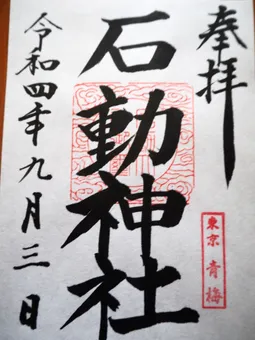 奉拝
石動神社
東京 青梅
令和四年九月三日